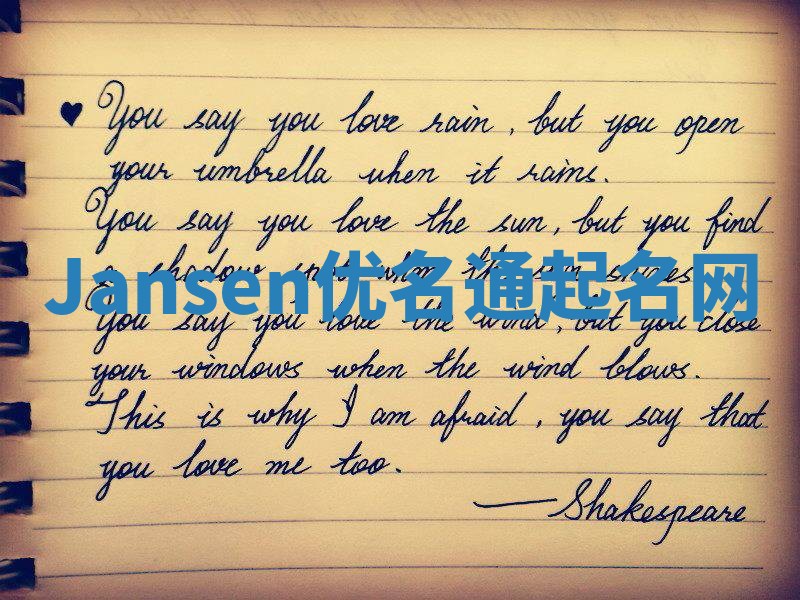 ♥ You say you love rain, but you open
your umbrella when it rains.
You say you love the sun, but you find
a shadow spot when the sun shines.
Jansen优名通起名网
You say you love the wind, but you close
your windows when the wind blows.
This is why I am afraid, you say that
you love me too.
—Shakespeare